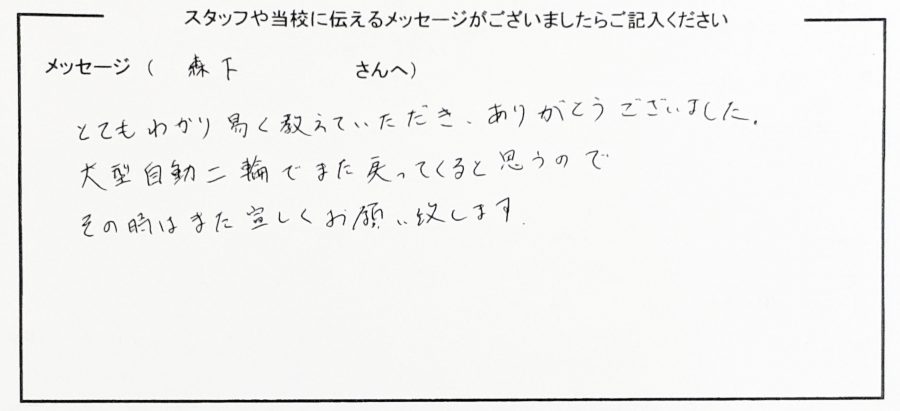 スタッフや当校に伝えるメッセージがございましたらご記入ください
メッセージ ( 森下 さんへ)
とてもわかり易く教えていただき、ありがとうございました。
大型自動二輪でまた戻ってくると思うので
その時はまた宜しくお願い致します。